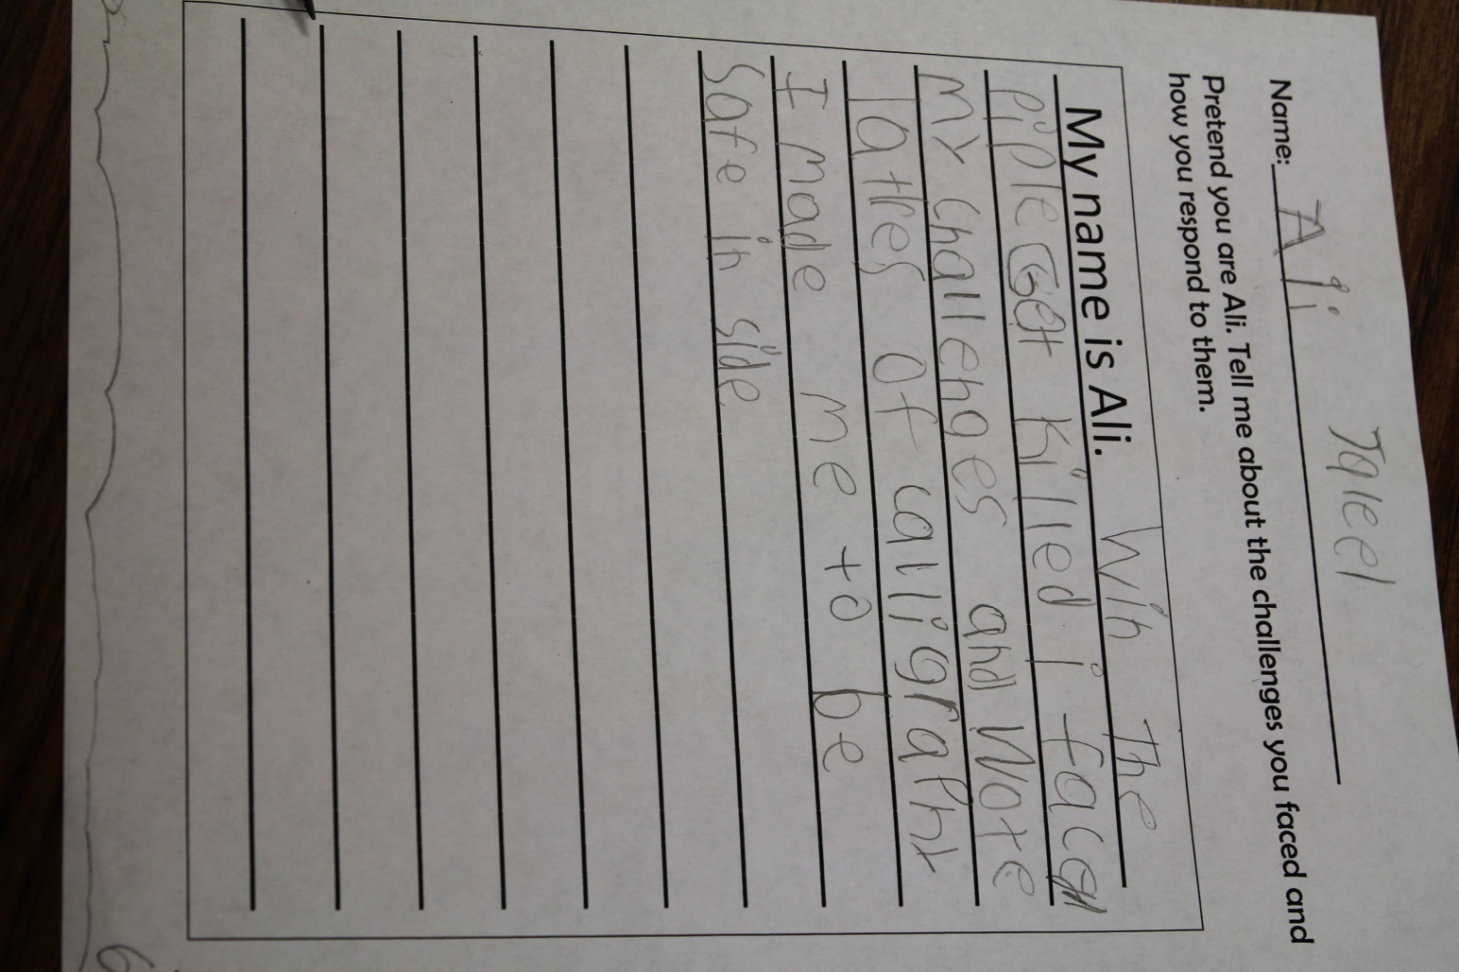 Name: Ali Jaleel
Pretend you are Ali. Tell me about the challenges you faced and
how you respond to them.
My name is Ali. Win The
piple Get killed i faced
my challenges and Wote
lathes of calligraphy
I made me to be
Safe in side